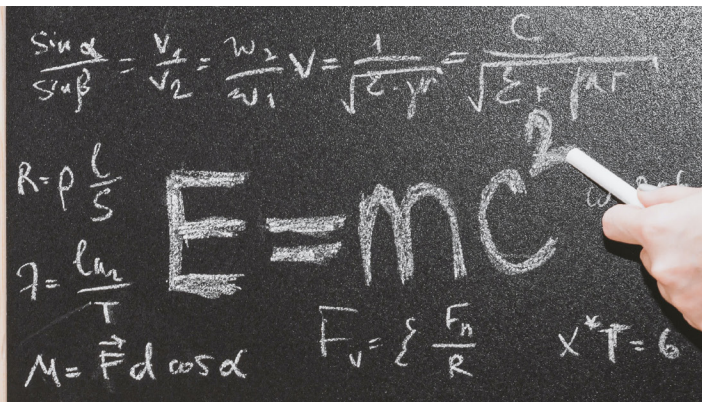 sin α / sin β = V₁ / V₂ = n₂ / n₁ V = 1 / √ε·μ = C / √εr μr
R = ρ l / S
E = mc²
λ = ln₂ / T
M = F⃗ d cos α
Fᵥ = ξ Fn / R
X*T = 6